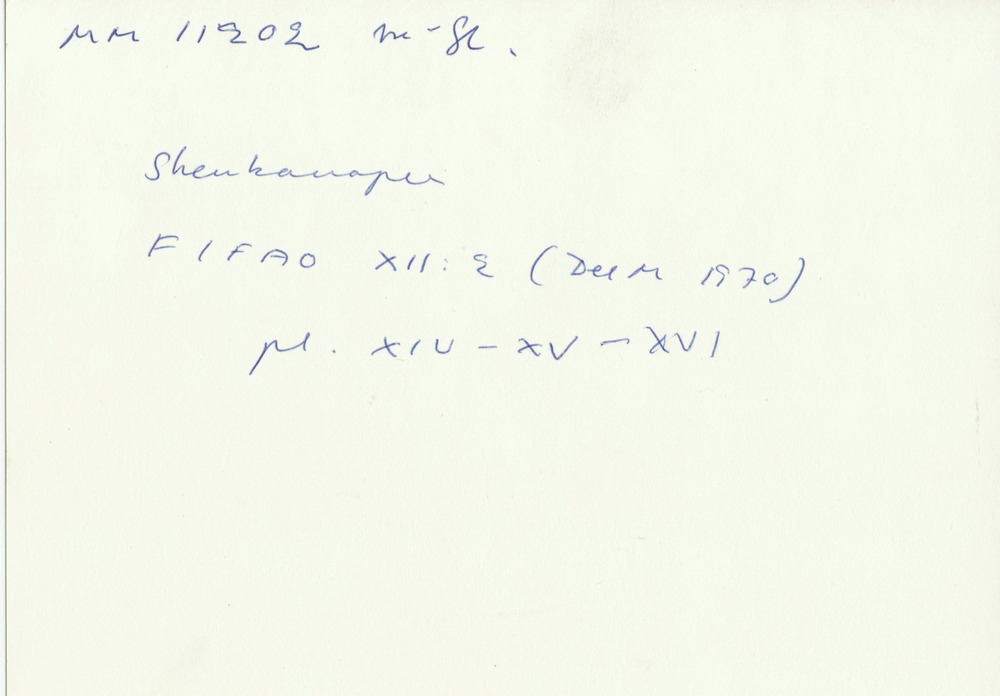 MM 11202
Shenkanopen
FIFAO XII:2 (DeeM 1970)
pl. XIV - XV - XVI